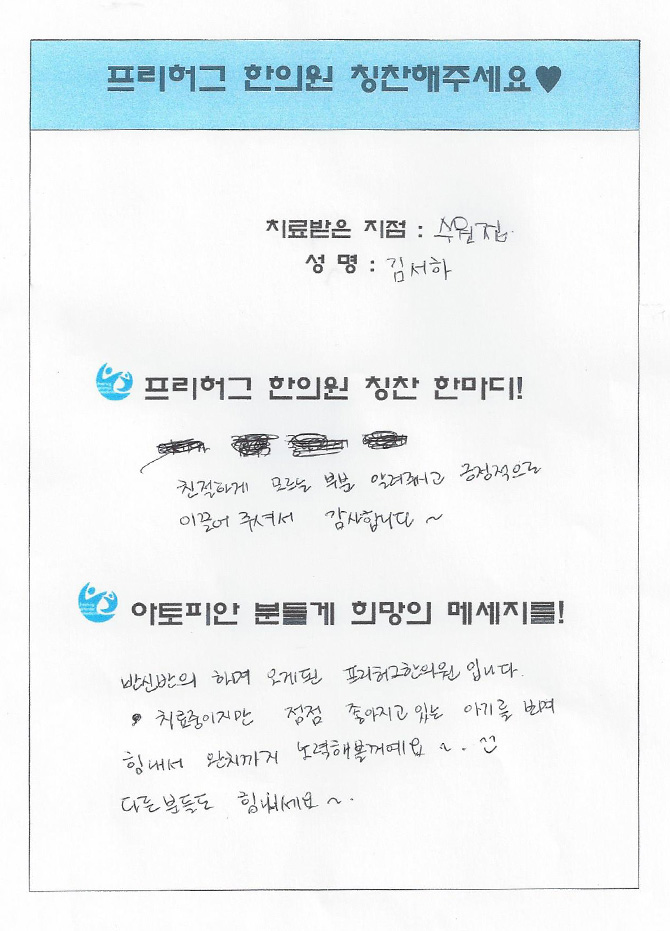 프리허그 한의원 칭찬해주세요♥
치료받은 지점 : 수원점.
성 명 : 김서하
프리허그 한의원 칭찬 한마디!
친절하게 모르는 부분 알려주시고 긍정적으로
이끌어 주셔서 감사합니다 ~
아토피안 분들게 희망의 메세지를!
반신반의 하며 오게된 프리허그한의원 입니다.
치료중이지만 점점 좋아지고 있는 아기를 보며
힘내서 완치까지 노력해볼꺼예요 ~.
다른분들도 힘내세요 ~.